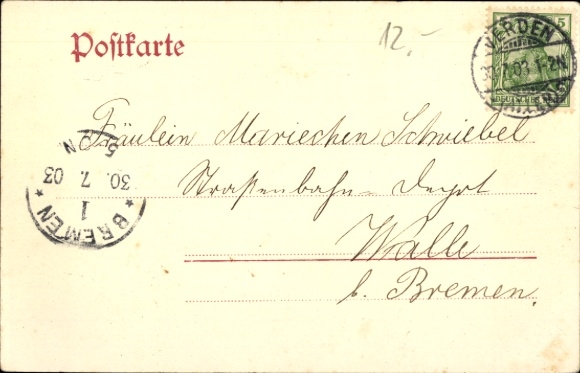 Postkarte
12,-
5
VERDEN
30.7.03.1-2N.
Fräulein Mariechen Schwiebel
Straßenbahn-Depot
Walle
b. Bremen.
BREMEN
1
30. 7. 03
5 N